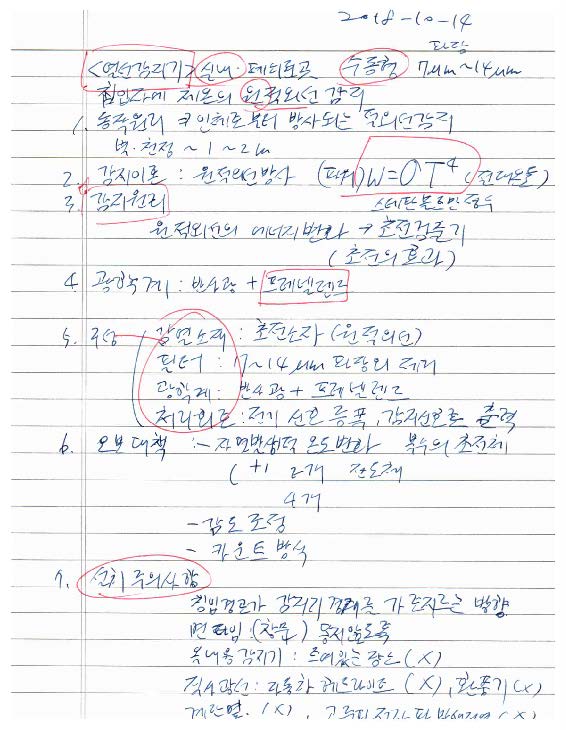 2018-10-14
<열선감지기> 실내·페퇴로곡 수동형 파장 7μm~14μm
침입자에 체온의 원적외선 감지
1. 동작원리 인체로부터 방사되는 적외선감지
벽·천정 ~ 1~2m
2. 감지이론 : 원적외선방사 (파워) W=σT⁴ (절대온도)
3. 감지원리 스테판볼츠만정수
원적외선의 에너지변화 → 초전검출기
(초전의 효과)
4. 광학계 : 반사광 + 프레넬렌즈
5. 구성 감열소재 : 초전소자 (원적외선)
필터 : 7~14μm 파장외 제거
광학계 : 반사광 + 프레넬렌즈
처리회로 : 전기 신호 증폭, 감지신호로 출력
6. 오보대책 :- 자연발생적 온도변화 복수의 초전체
(+) 2개
4개
- 감도 조정
- 카운트 방식
7. 설치 주의사항
침입경로가 감지기 경계를 가로지르는 방향
(창문) 놓지않도록
옥내용감지기 : 트여있는 장소 (X)
직사광선 : 자동차 헤드라이트 (X), 환풍기 (X)
(X), 고주파 전자파 발생지역 (X)